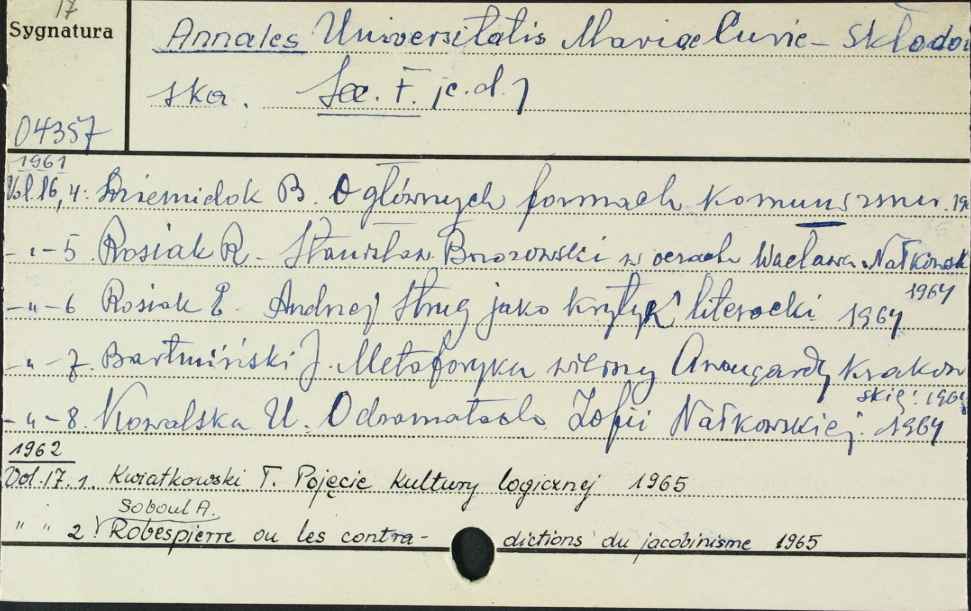 17
Sygnatura
Annales Universitatis Mariae Curie-Skłodow
ska. Sec. F. /c.d./
04357
1961
Vol. 16, 4. Dziemidok B. O głównych formach komunizmu. 19
-"-5 Rosiak R. Stanisław Brzozowski w oczach Wacława Nałkowsk
1964
-"-6 Rosiak R. Andrzej Strug jako krytyk literacki 1964
-"-7. Bartmiński J. Metaforyka wierszy Awangardy Krakow
skiej. 1964
-"-8. Kowalska U. O dramatach Zofii Nałkowskiej. 1964
1962
Vol. 17. 1. Kwiatkowski T. Pojęcie kultury logicznej 1965
Soboul A.
" " 2 Robespierre ou les contra-dictions du jacobinisme 1965